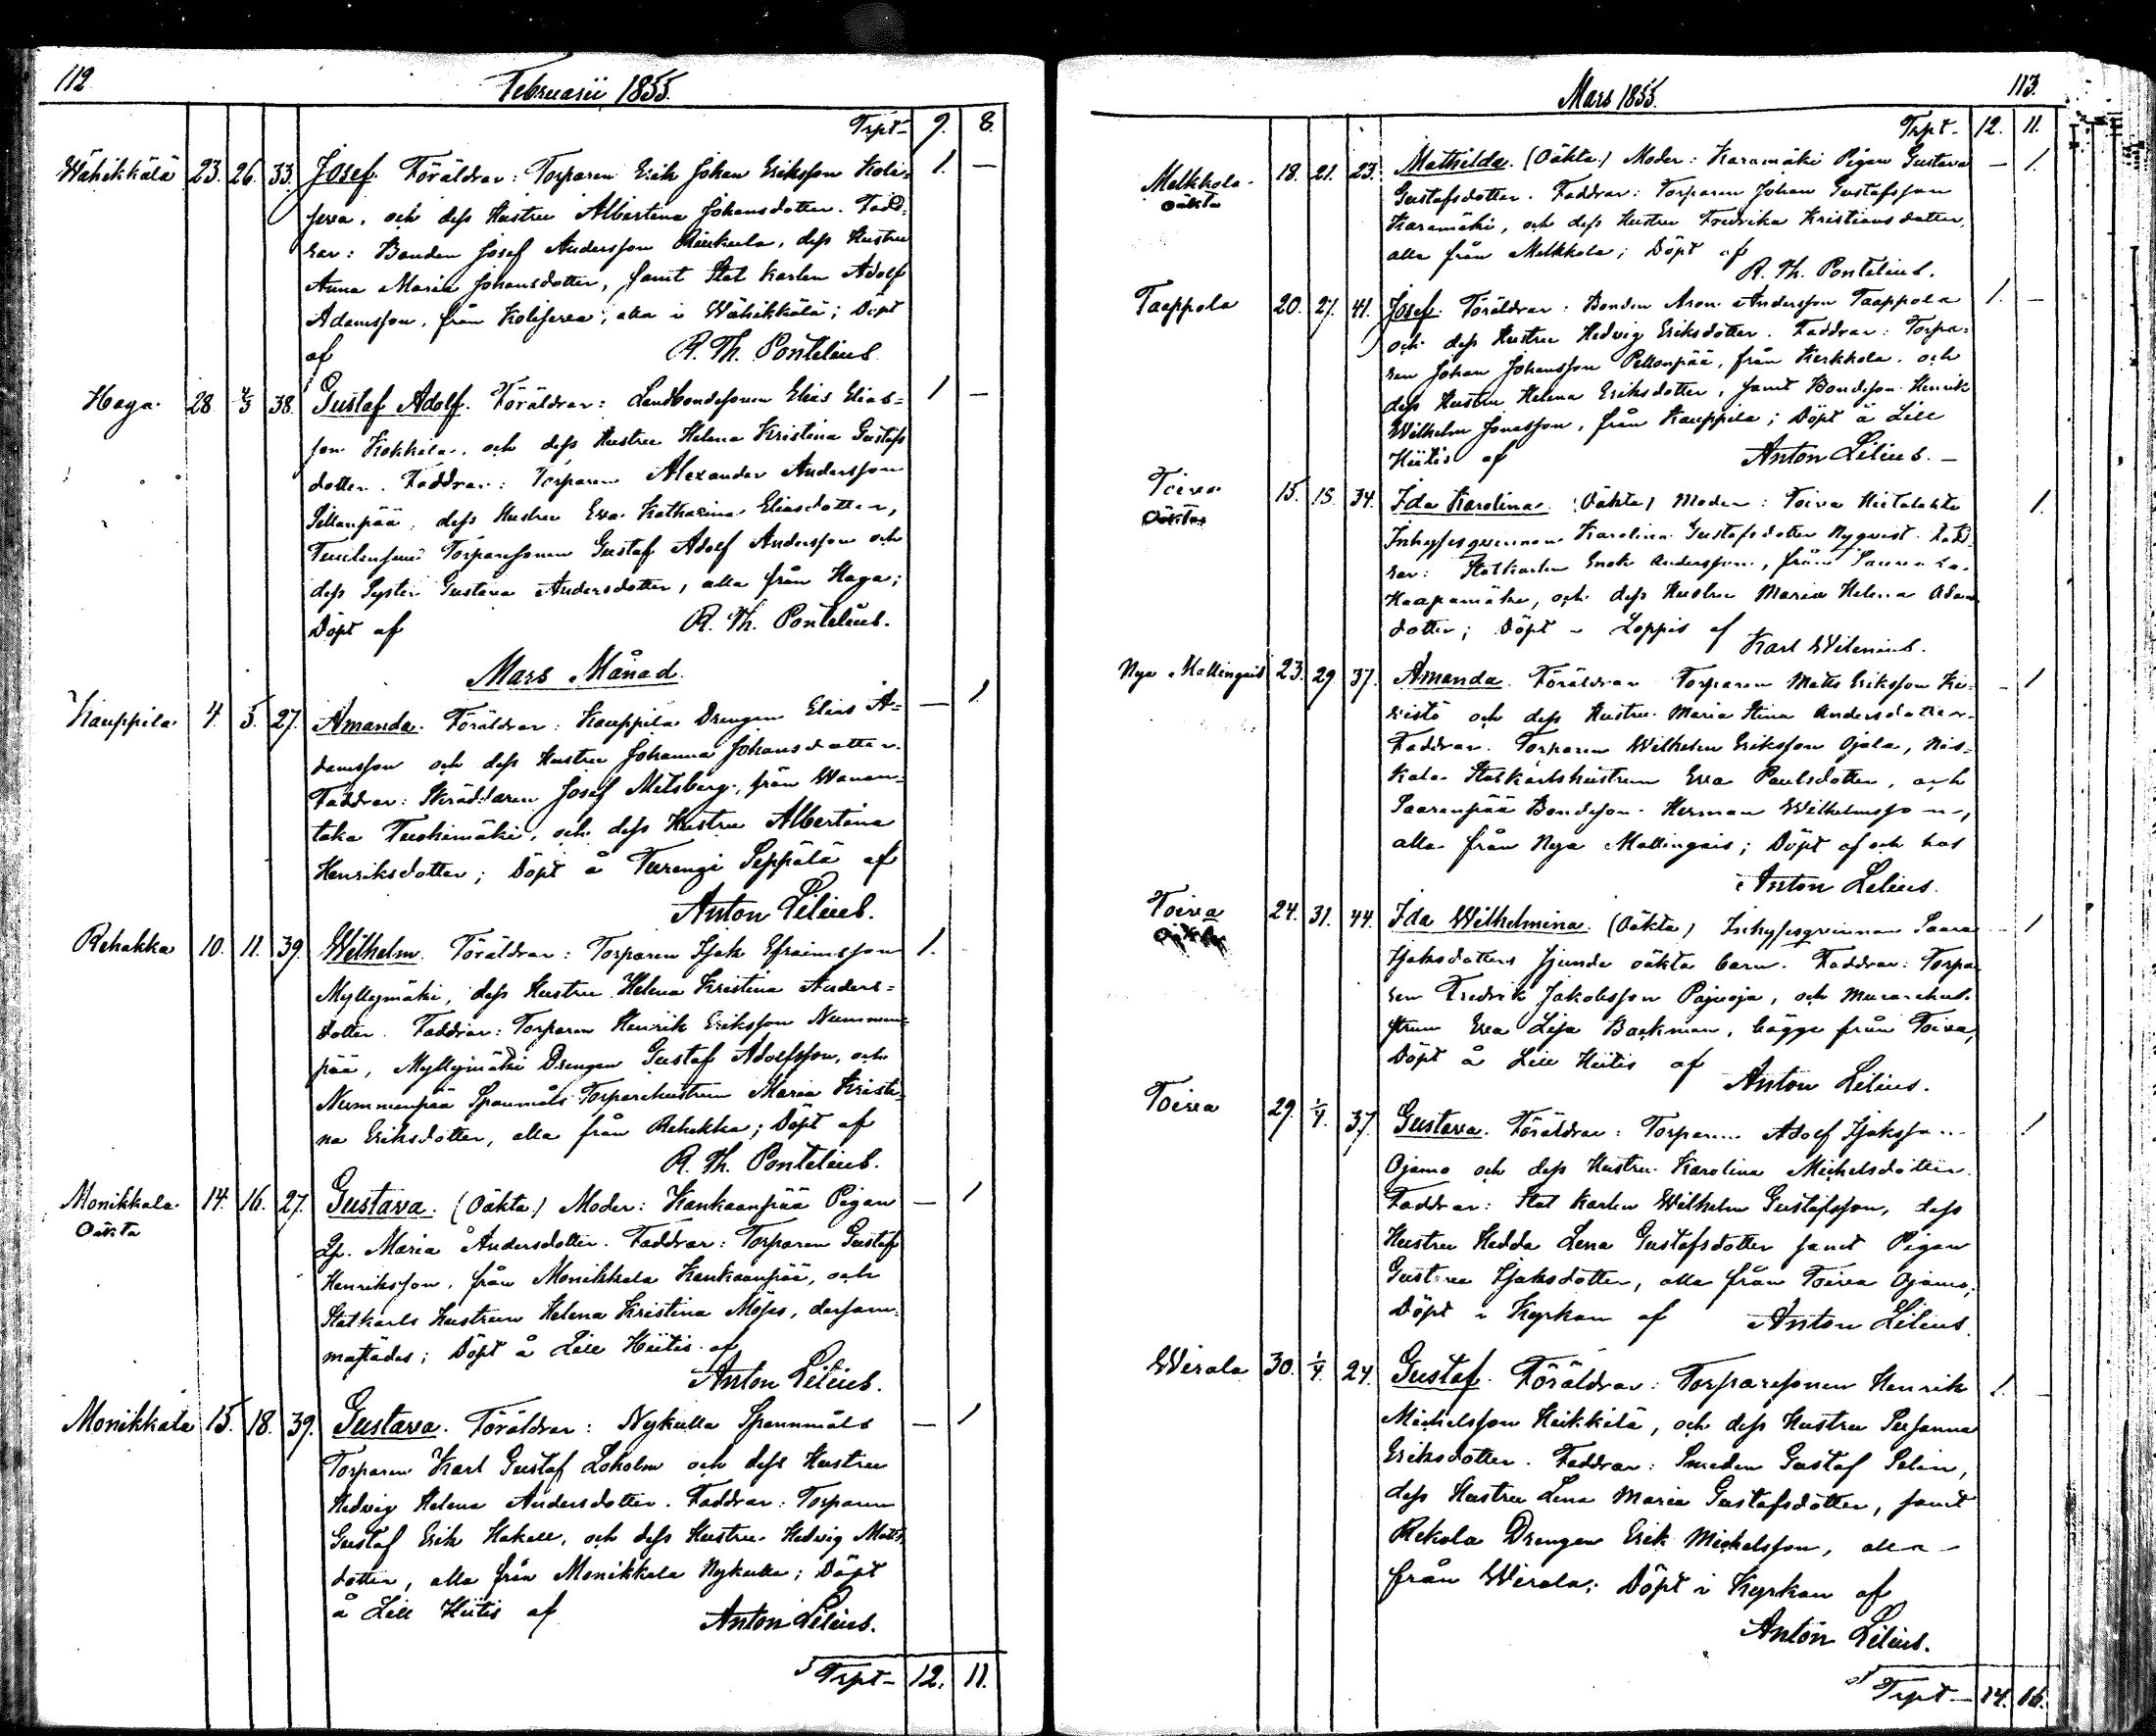 112
Februarii 1855.
Trpt- 9. 8.
Wähikkälä 23. 26. 33. Josef. Föräldrar: Torparen Erik Johan Eriksson Koli= 1. —
serva, och dess Hustru Albertina Johansdotter. Fadd=
rar: Bonden Josef Andersson Riukula, dess Hustru
Anna Maria Johansdotter, samt Stat karlen Adolf
Adamsson, från Koliserva, alla i Wähikkälä; Döpt
af R. Th. Pontelius.
Haga 28. 2/3 38. Gustaf Adolf. Föräldrar: Landbondesonen Elias Elias= 1 —
son Kokkila, och dess Hustru Helena Kristina Gustafs
dotter. Faddrar: Torparen Alexander Andersson
Sillanpää, dess Hustru Eva Katharina Eliasdotter,
Torparesonen Gustaf Adolf Andersson och
dess Syster Gustava Andersdotter, alla från Haga;
Döpt af R. Th. Pontelius.
Mars Månad.
Kauppila 4. 5. 27. Amanda. Föräldrar: Kauppila Drengen Elias A= — 1
damsson och dess Hustru Johanna Johansdotter.
Faddrar: Skräddaren Josef Metsberg, från Wanan=
taka Tuohimäki, och dess Hustru Albertina
Henriksdotter; Döpt å Turengi Seppälä af
Anton Lilius.
Rehakka 10. 11. 39. Wilhelm. Föräldrar: Torparen Isak Efraimsson 1.
Myllymäki, dess Hustru Helena Kristina Anders=
dotter. Faddrar: Torparen Henrik Eriksson Nummen=
pää, Myllymäki Drengen Gustaf Adolfsson, och
Nummenpää Spanmåls Torparehustrun Maria Kristi=
na Eriksdotter, alla från Rehakka; Döpt af
R. Th. Pontelius.
Monikkala 14. 16. 27. Gustava. (Oäkta) Moder: Kankaanpää Pigan — 1
Oäkta
Maria Andersdotter. Faddrar: Torparen Gustaf
Henriksson, från Monikkala Kankaanpää, och
Statkarls Hustrun Helena Kristina Moses, dersam=
mastädes; Döpt å Lill Hiitis af
Anton Lilius.
Monikkala 15. 18. 39. Gustava. Föräldrar: Nykulla Spannmåls — 1
Torparen Karl Gustaf Loholm och dess Hustru
Hedvig Helena Andersdotter. Faddrar: Torparen
Gustaf Erik Hakell, och dess Hustru Hedvig Matts
dotter, alla från Monikkala Nykulla; Döpt
å Lill Hiitis af Anton Lilius.
Trpt- 12. 11.
113.
Mars 1855.
Trpt- 12. 11.
Melkkola 18. 21. 23. Mathilda. (Oäkta) Moder: Karamäki Pigan Gustava — 1.
oäkta
Gustafsdotter. Faddrar: Torparen Johan Gustafsson
Karamäki, och dess Hustru Fredrika Kristiansdotter,
alla från Melkkola; Döpt af
R. Th. Pontelius.
Taappola 20. 27. 41. Josef. Föräldrar: Bonden Aron Andersson Taappola 1. —
och dess Hustru Hedvig Eriksdotter. Faddrar: Torpa=
ren Johan Johansson Pellonpää, från Kerkkola, och
dess Hustru Helena Eriksdotter, samt Bondeson Henrik
Wilhelm Jonasson, från Kauppila; Döpt å Lill
Hiitis af Anton Lilius. —
Toiva 15. 18. 34. Ida Karolina. (Oäkta) Moder: Toiva Hietalahti 1.
Oäkta
Inhyses qvinnan Karolina Gustafsdotter Nyqvist. Fadd
rar: Statkarlen Enok Andersson, från
Haapamäki, och dess Hustru Maria Helena Adams
dotter; Döpt i Loppis af
Karl Wilenius.
Nya Mallinguis 23. 29. 37. Amanda. Föräldrar Torparen Matts Eriksson Ki= — 1
vistö och dess Hustru Maria Stina Andersdotter.
Faddrar. Torparen Wilhelm Eriksson Ojala, Nis=
kala Statkarlshustrun Eva Paulsdotter, och
Saarenpää Bondeson Herman Wilhelmsson,
alla från Nya Mallinguis; Döpt af och hos
Anton Lilius.
Toiva 24. 31. 44. Ida Wilhelmina. (Oäkta) Inhysesqvinnan Saara — 1
Isaksdotters sjunde oäkta barn. Faddrar: Torpa
ren Fredrik Jakobsson Pajuoja, och Murarehu=
strun Eva Lisa Backman, bägge från Toiva,
Döpt å Lill Hiitis af
Anton Lilius.
Toiva 29. 1/4. 37. Gustava. Föräldrar: Torparen Adolf Isaksson 1
Ojamo och dess Hustru Karolina Michelsdotter.
Faddrar: Stat karlen Wilhelm Gustafsson, dess
Hustru Hedda Lena Gustafsdotter samt Pigan
Gustava Isaksdotter, alla från Toiva Ojamo;
Döpt i Kyrkan af Anton Lilius.
Wirala 30. 1/4. 24. Gustaf. Föräldrar: Torparesonen Henrik 1. —
Michelsson Heikkilä, och dess Hustru Susanna
Eriksdotter. Faddrar: Smeden Gustaf Selin,
dess Hustru Lena Maria Gustafsdotter, samt
Rekola Drengen Erik Michelsson, alla
från Wirala; Döpt i Kyrkan af
Anton Lilius.
Trpt- 14. 16.